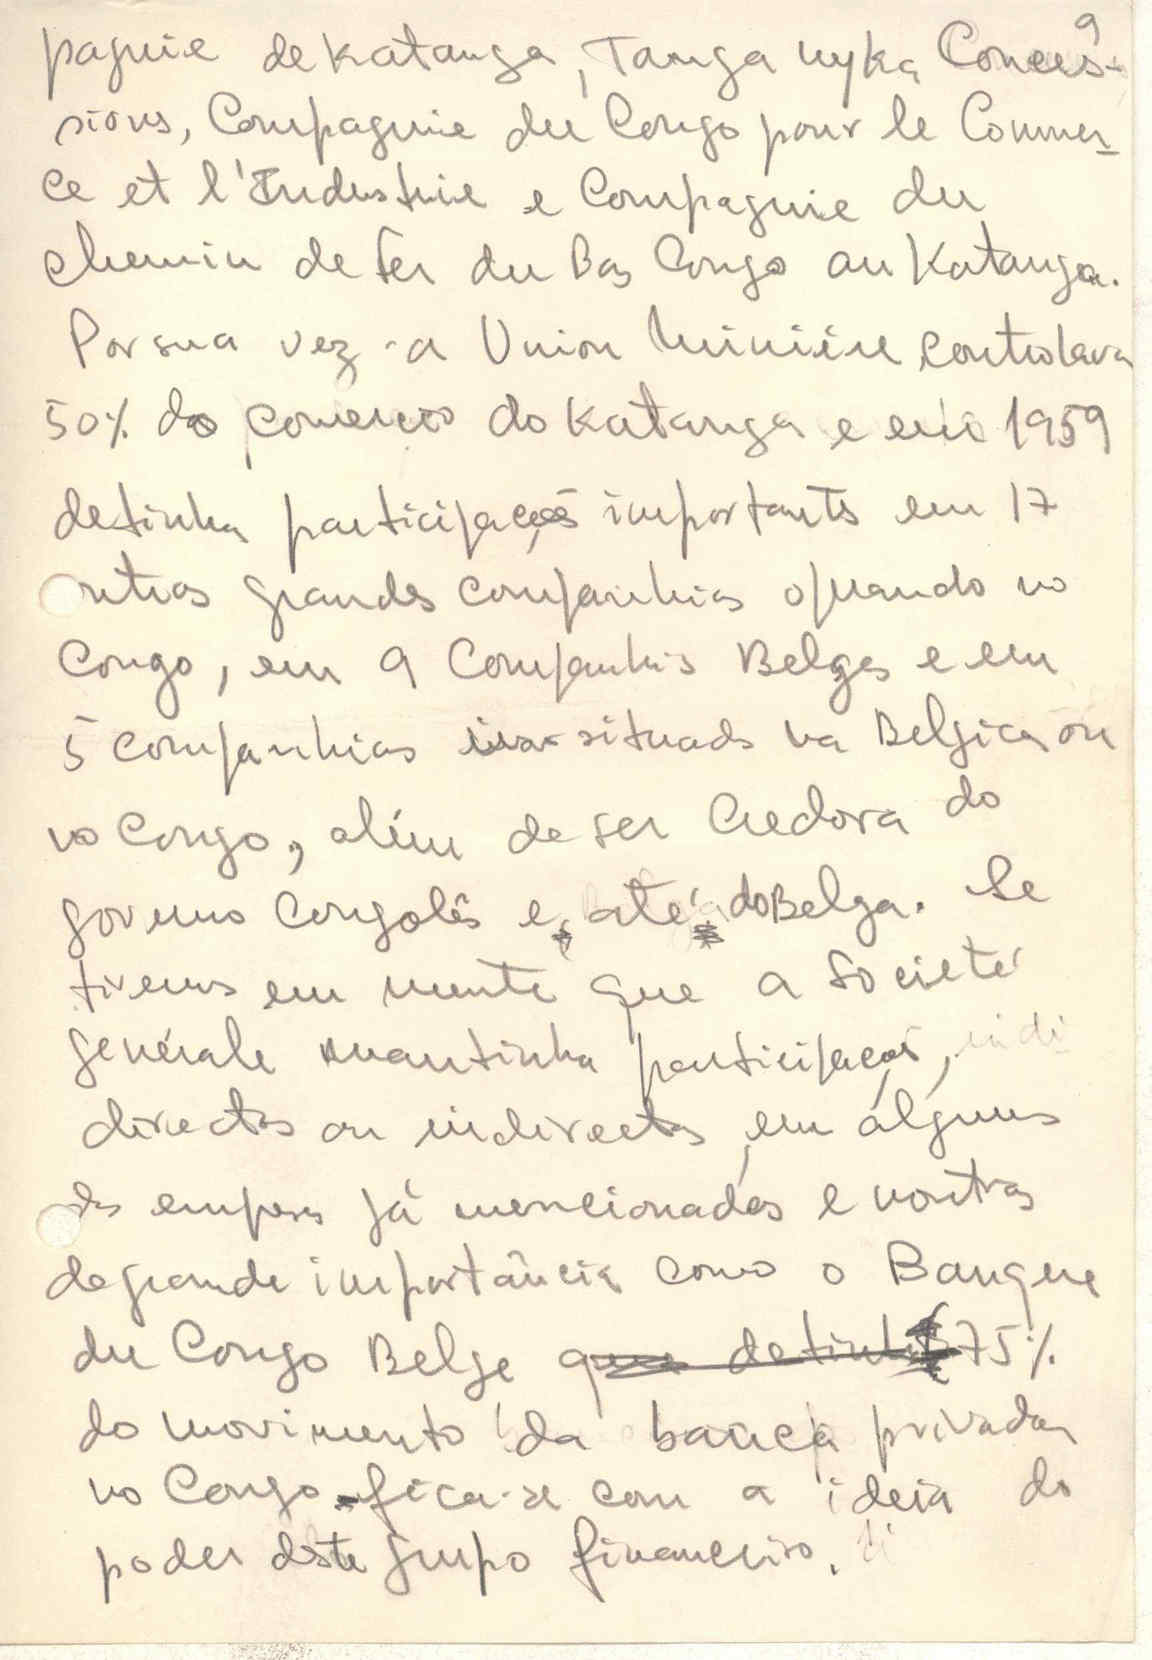 9
pagnie de Katanga, Tanganyka Conces-
sions, Compagnie du Congo pour le Commer-
ce et l'Industrie e Compagnie du
chemin de fer du Bas Congo au Katanga.
Por sua vez a Union Minière controlava
50% do comercio do Katanga e em 1959
detinha participações importants em 17
outras grandes companhias operando no
Congo, em 9 Companhis Belgas e em
5 companhias situads na Belgica ou
no Congo, além de ser credora do
governo congolês e até do Belga. Se
tivemos em mente que a Societé
genérale mantinha participações, indi
directas ou indirectas, em alguns
ds empresas já mencionadas e noutras
de grande importância como o Banque
du Congo Belge que detinha 75%
do movimento da banca privada
no Congo fica-se com a ideia do
poder deste grupo financeiro.